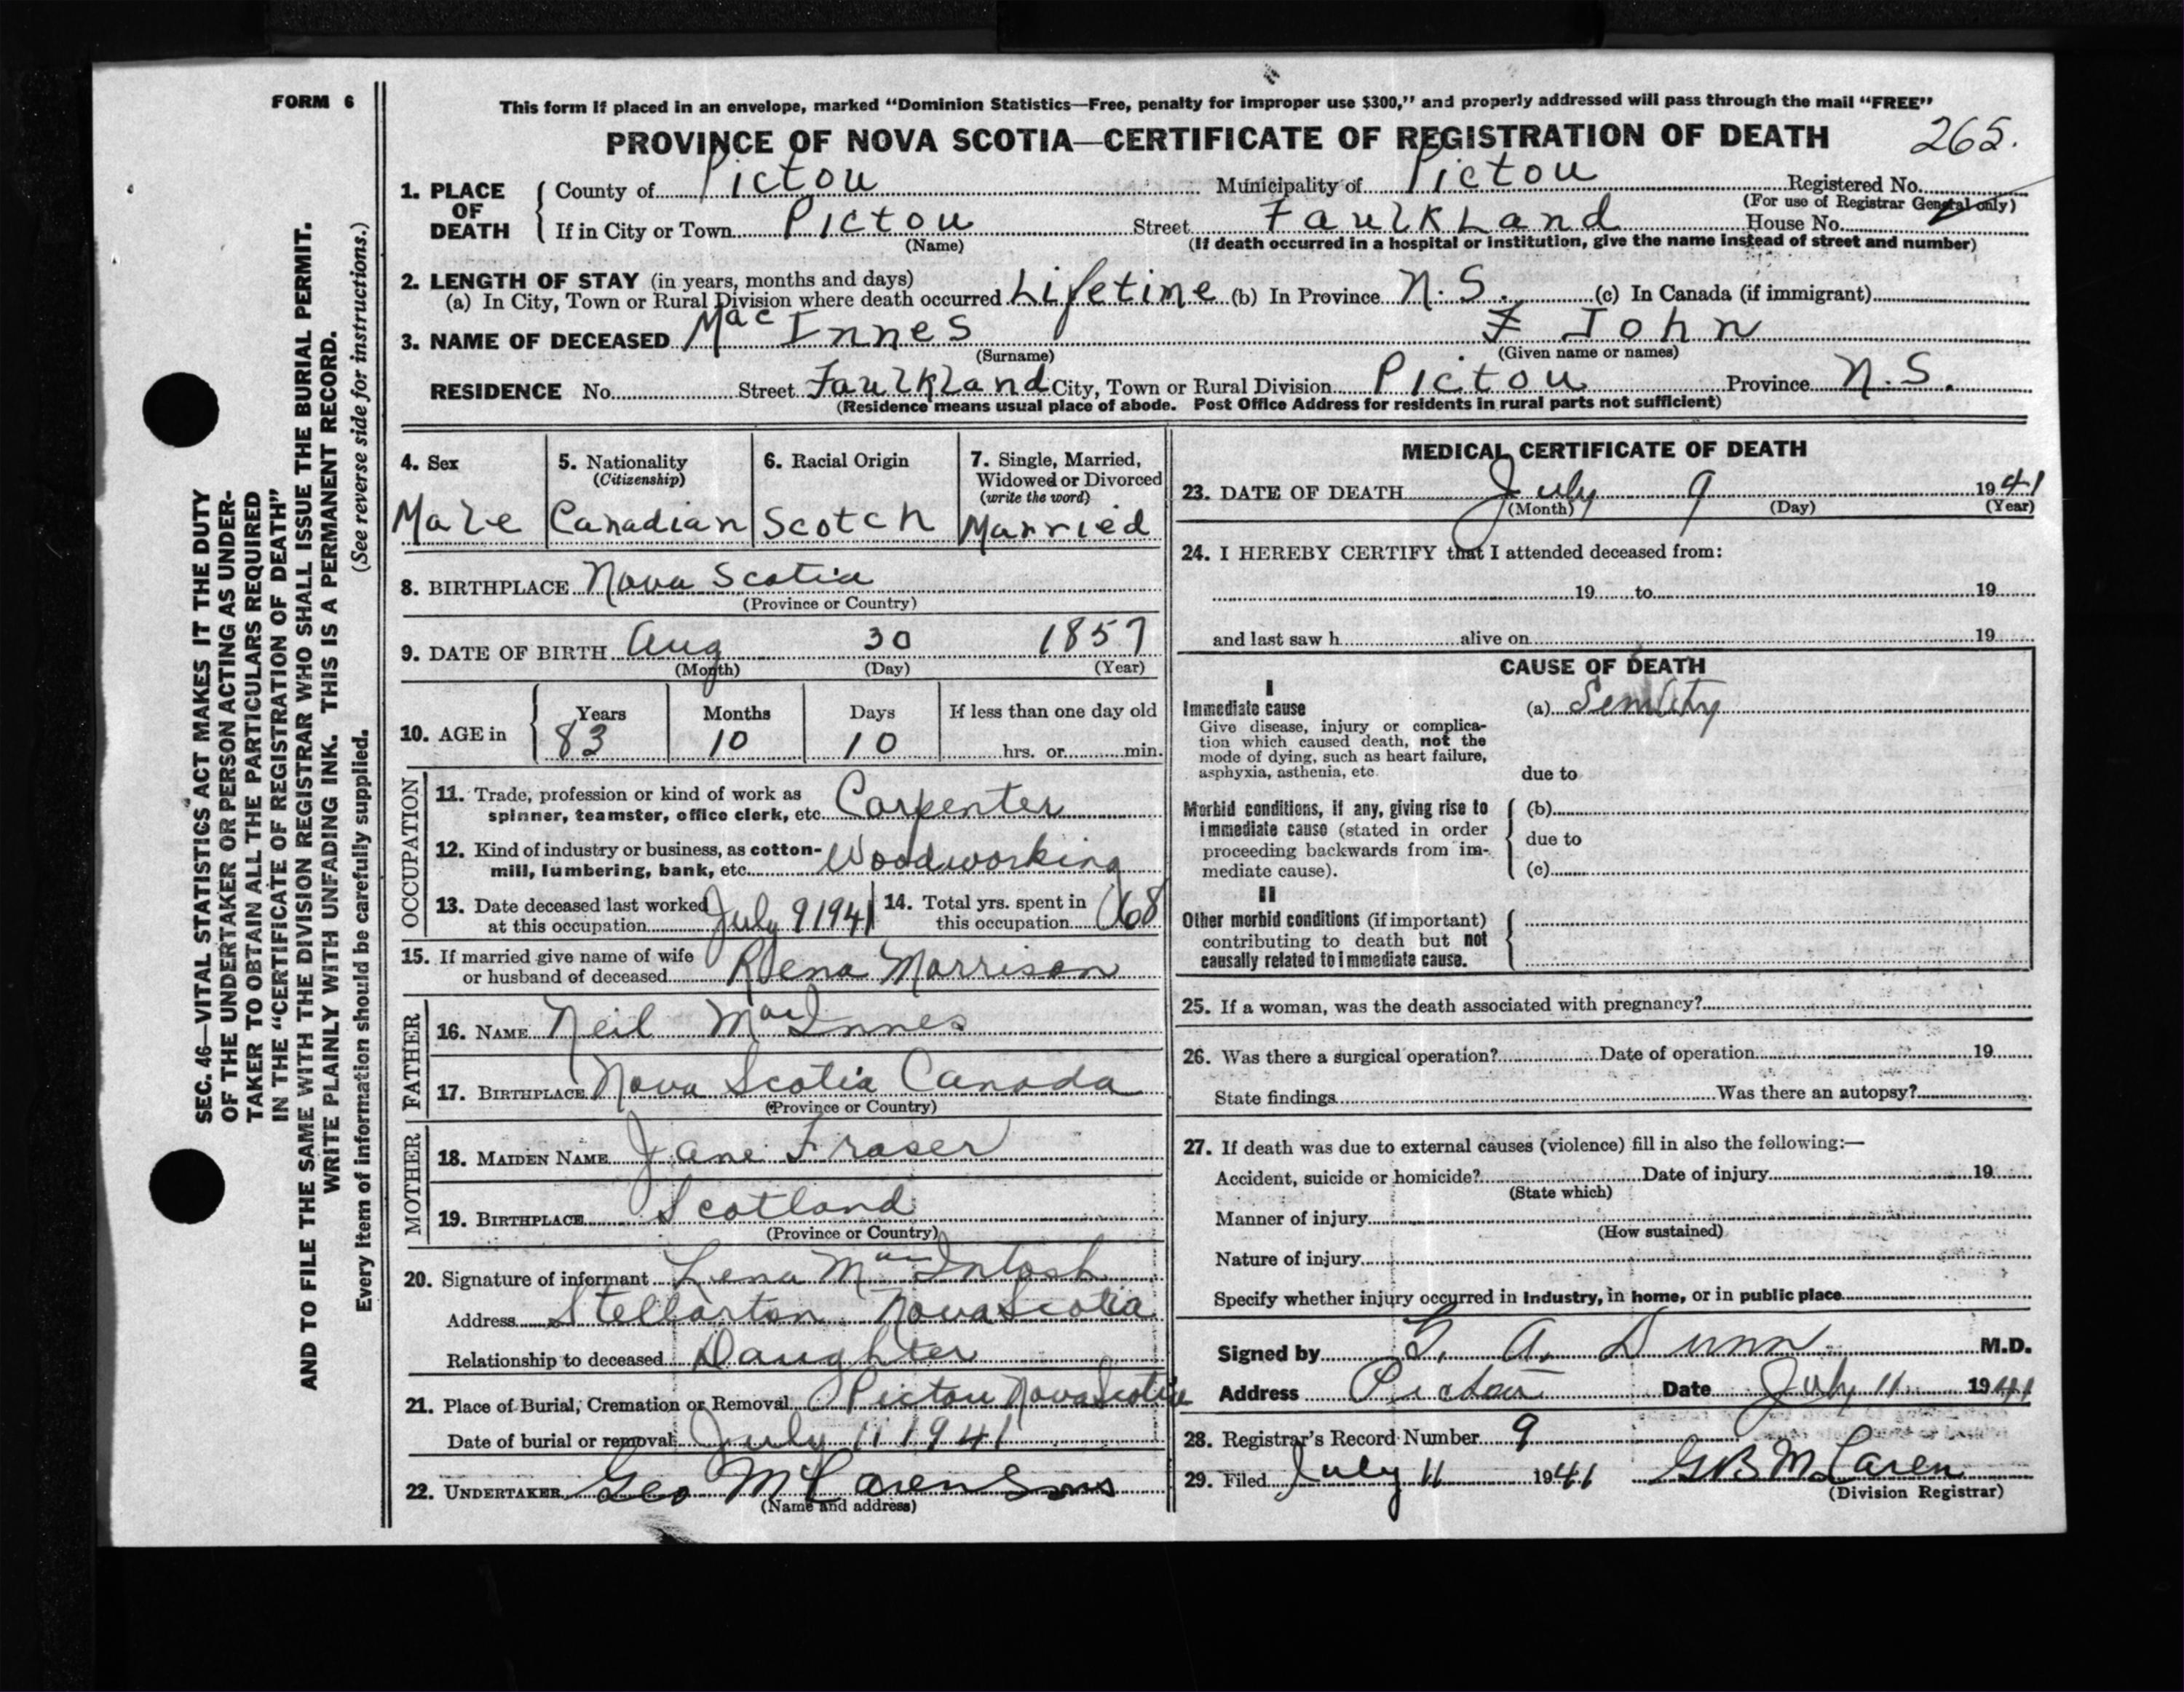 FORM 6
This form if placed in an envelope, marked "Dominion Statistics—Free, penalty for improper use $300," and properly addressed will pass through the mail "FREE"
PROVINCE OF NOVA SCOTIA—CERTIFICATE OF REGISTRATION OF DEATH 265.
1. PLACE OF DEATH County of Pictou Municipality of Pictou Registered No.
(For use of Registrar General only)
If in City or Town Pictou Street Faulkland House No.
(Name) (If death occurred in a hospital or institution, give the name instead of street and number)
2. LENGTH OF STAY (in years, months and days)
(a) In City, Town or Rural Division where death occurred Lifetime (b) In Province N.S. (c) In Canada (if immigrant)
3. NAME OF DECEASED MacInnes John
(Surname) (Given name or names)
RESIDENCE No. Street Faulkland City, Town or Rural Division Pictou Province N.S.
(Residence means usual place of abode. Post Office Address for residents in rural parts not sufficient)
4. Sex 5. Nationality 6. Racial Origin 7. Single, Married,
(Citizenship) Widowed or Divorced
(write the word)
Male Canadian Scotch Married
8. BIRTHPLACE Nova Scotia
(Province or Country)
9. DATE OF BIRTH Aug 30 1857
(Month) (Day) (Year)
10. AGE in Years Months Days If less than one day old
83 10 10 hrs. or min.
OCCUPATION
11. Trade, profession or kind of work as
spinner, teamster, office clerk, etc. Carpenter
12. Kind of industry or business, as cotton-
mill, lumbering, bank, etc. Woodworking
13. Date deceased last worked
at this occupation July 9 1941
14. Total yrs. spent in
this occupation 68
15. If married give name of wife
or husband of deceased Rena Morrison
FATHER
16. NAME Neil MacInnes
17. BIRTHPLACE Nova Scotia Canada
(Province or Country)
MOTHER
18. MAIDEN NAME Jane Fraser
19. BIRTHPLACE Scotland
(Province or Country)
20. Signature of informant Lena MacIntosh
Address Stellarton Nova Scotia
Relationship to deceased Daughter
21. Place of Burial, Cremation or Removal Pictou Nova Scotia
Date of burial or removal July 11 1941
22. UNDERTAKER Geo McLaren Sons
(Name and address)
MEDICAL CERTIFICATE OF DEATH
23. DATE OF DEATH July 9 1941
(Month) (Day) (Year)
24. I HEREBY CERTIFY that I attended deceased from:
19 to 19
and last saw h alive on 19
CAUSE OF DEATH
I
Immediate cause (a) Senility
Give disease, injury or complica-
tion which caused death, not the
mode of dying, such as heart failure,
asphyxia, asthenia, etc. due to
Morbid conditions, if any, giving rise to (b)
immediate cause (stated in order due to
proceeding backwards from im-
mediate cause). (c)
II
Other morbid conditions (if important)
contributing to death but not
causally related to immediate cause.
25. If a woman, was the death associated with pregnancy?
26. Was there a surgical operation? Date of operation 19
State findings Was there an autopsy?
27. If death was due to external causes (violence) fill in also the following:—
Accident, suicide or homicide? Date of injury 19
(State which)
Manner of injury
(How sustained)
Nature of injury
Specify whether injury occurred in Industry, in home, or in public place
Signed by G. A. Dunn M.D.
Address Pictou Date July 11 1941
28. Registrar's Record Number 9
29. Filed July 11 1941 GB McLaren
(Division Registrar)
SEC. 46—VITAL STATISTICS ACT MAKES IT THE DUTY
OF THE UNDERTAKER OR PERSON ACTING AS UNDER-
TAKER TO OBTAIN ALL THE PARTICULARS REQUIRED
IN THE "CERTIFICATE OF REGISTRATION OF DEATH"
AND TO FILE THE SAME WITH THE DIVISION REGISTRAR WHO SHALL ISSUE THE BURIAL PERMIT.
WRITE PLAINLY WITH UNFADING INK. THIS IS A PERMANENT RECORD.
Every item of information should be carefully supplied. (See reverse side for instructions.)